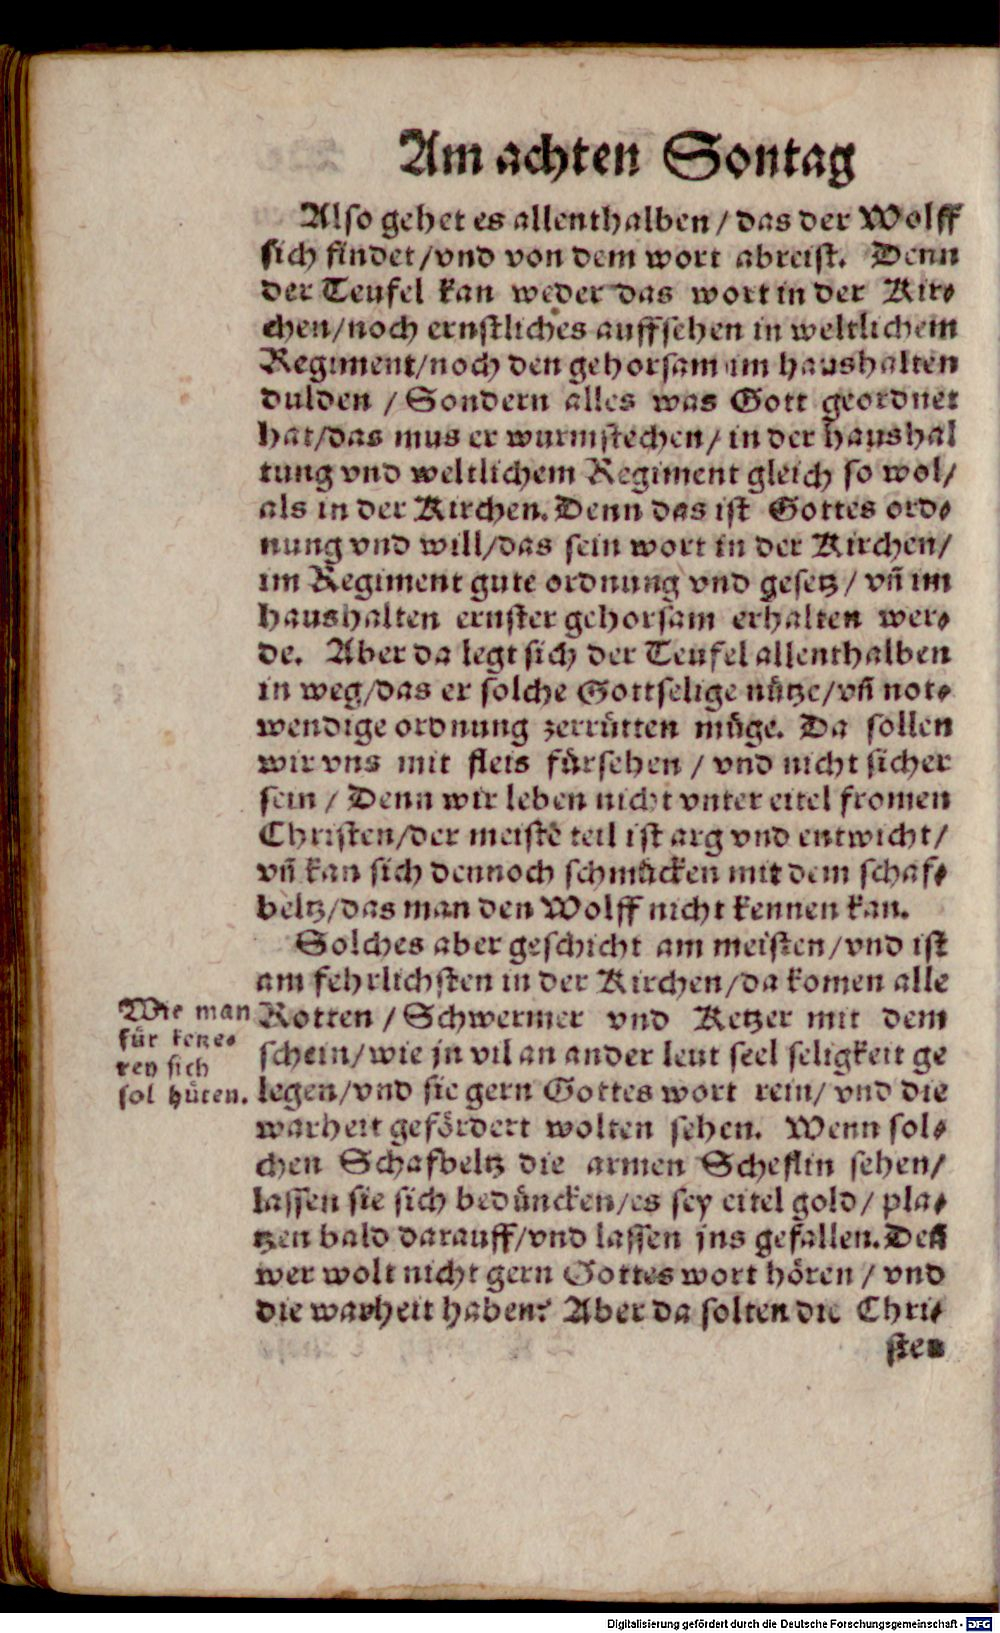 Am achten Sontag
Also gehet es allenthalben / das der Wolff
sich findet / vnd von dem wort abreist. Denn
der Teufel kan weder das wort in der Kir⸗
chen / noch ernstliches auffsehen in weltlichem
Regiment / noch den gehorsam im haushalten
dulden / Sondern alles was Gott geordnet
hat / das mus er wurmstechen / in der haushal
tung vnd weltlichem Regiment gleich so wol /
als in der Kirchen. Denn das ist Gottes ord⸗
nung vnd will / das sein wort in der Kirchen /
im Regiment gute ordnung vnd gesetz / vn̄ im
haushalten ernster gehorsam erhalten wer⸗
de. Aber da legt sich der Teufel allenthalben
in weg / das er solche Gottselige nütze / vn̄ not⸗
wendige ordnung zerrütten müge. Da sollen
wir vns mit fleis fürsehen / vnd nicht sicher
sein / Denn wir leben nicht vnter eitel fromen
Christen / der meistē teil ist arg vnd entwicht /
vn̄ kan sich dennoch schmücken mit dem schaf⸗
beltz / das man den Wolff nicht kennen kan.
Solches aber geschicht am meisten / vnd ist
am fehrlichsten in der Kirchen / da komen alle
Rotten / Schwermer vnd Ketzer mit dem
schein / wie jn vil an ander leut seel seligkeit ge
legen / vnd sie gern Gottes wort rein / vnd die
warheit gefördert wolten sehen. Wenn sol⸗
chen Schafbeltz die armen Scheflin sehen /
lassen sie sich bedüncken / es sey eitel gold / pla⸗
tzen bald darauff / vnd lassen jns gefallen. Deñ
wer wolt nicht gern Gottes wort hören / vnd
die warheit haben? Aber da solten die Chri⸗
sten
Wie man
für ketze⸗
rey sich
sol hüten.
Digitalisierung gefördert durch die Deutsche Forschungsgemeinschaft - DFG